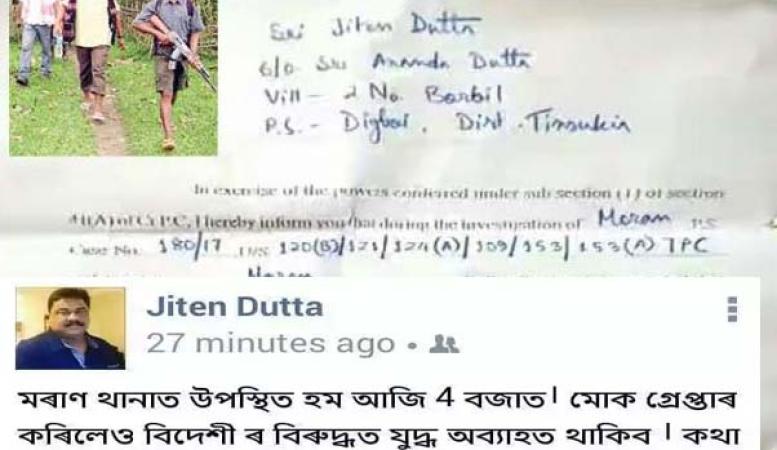 Sri Jiten Dutta
S/o Sri Ananda Dutta
Vill - 2 No. Borbil
P.S. - Digboi, Dist. Tinsukia
In exercise of the powers conferred under sub section (1) of section
41(A) of Cr.P.C, I hereby inform you that during the investigation of Moran P.S
Case No. 180/17 U/S 120(B)/121/124(A)/109/153/153(A) IPC
Jiten Dutta
27 minutes ago •
মৰাণ থানাত উপস্থিত হম আজি 4 বজাত। মোক গ্ৰেপ্তাৰ
কৰিলেও বিদেশী ৰ বিৰুদ্ধত যুদ্ধ অব্যাহত থাকিব । কথা